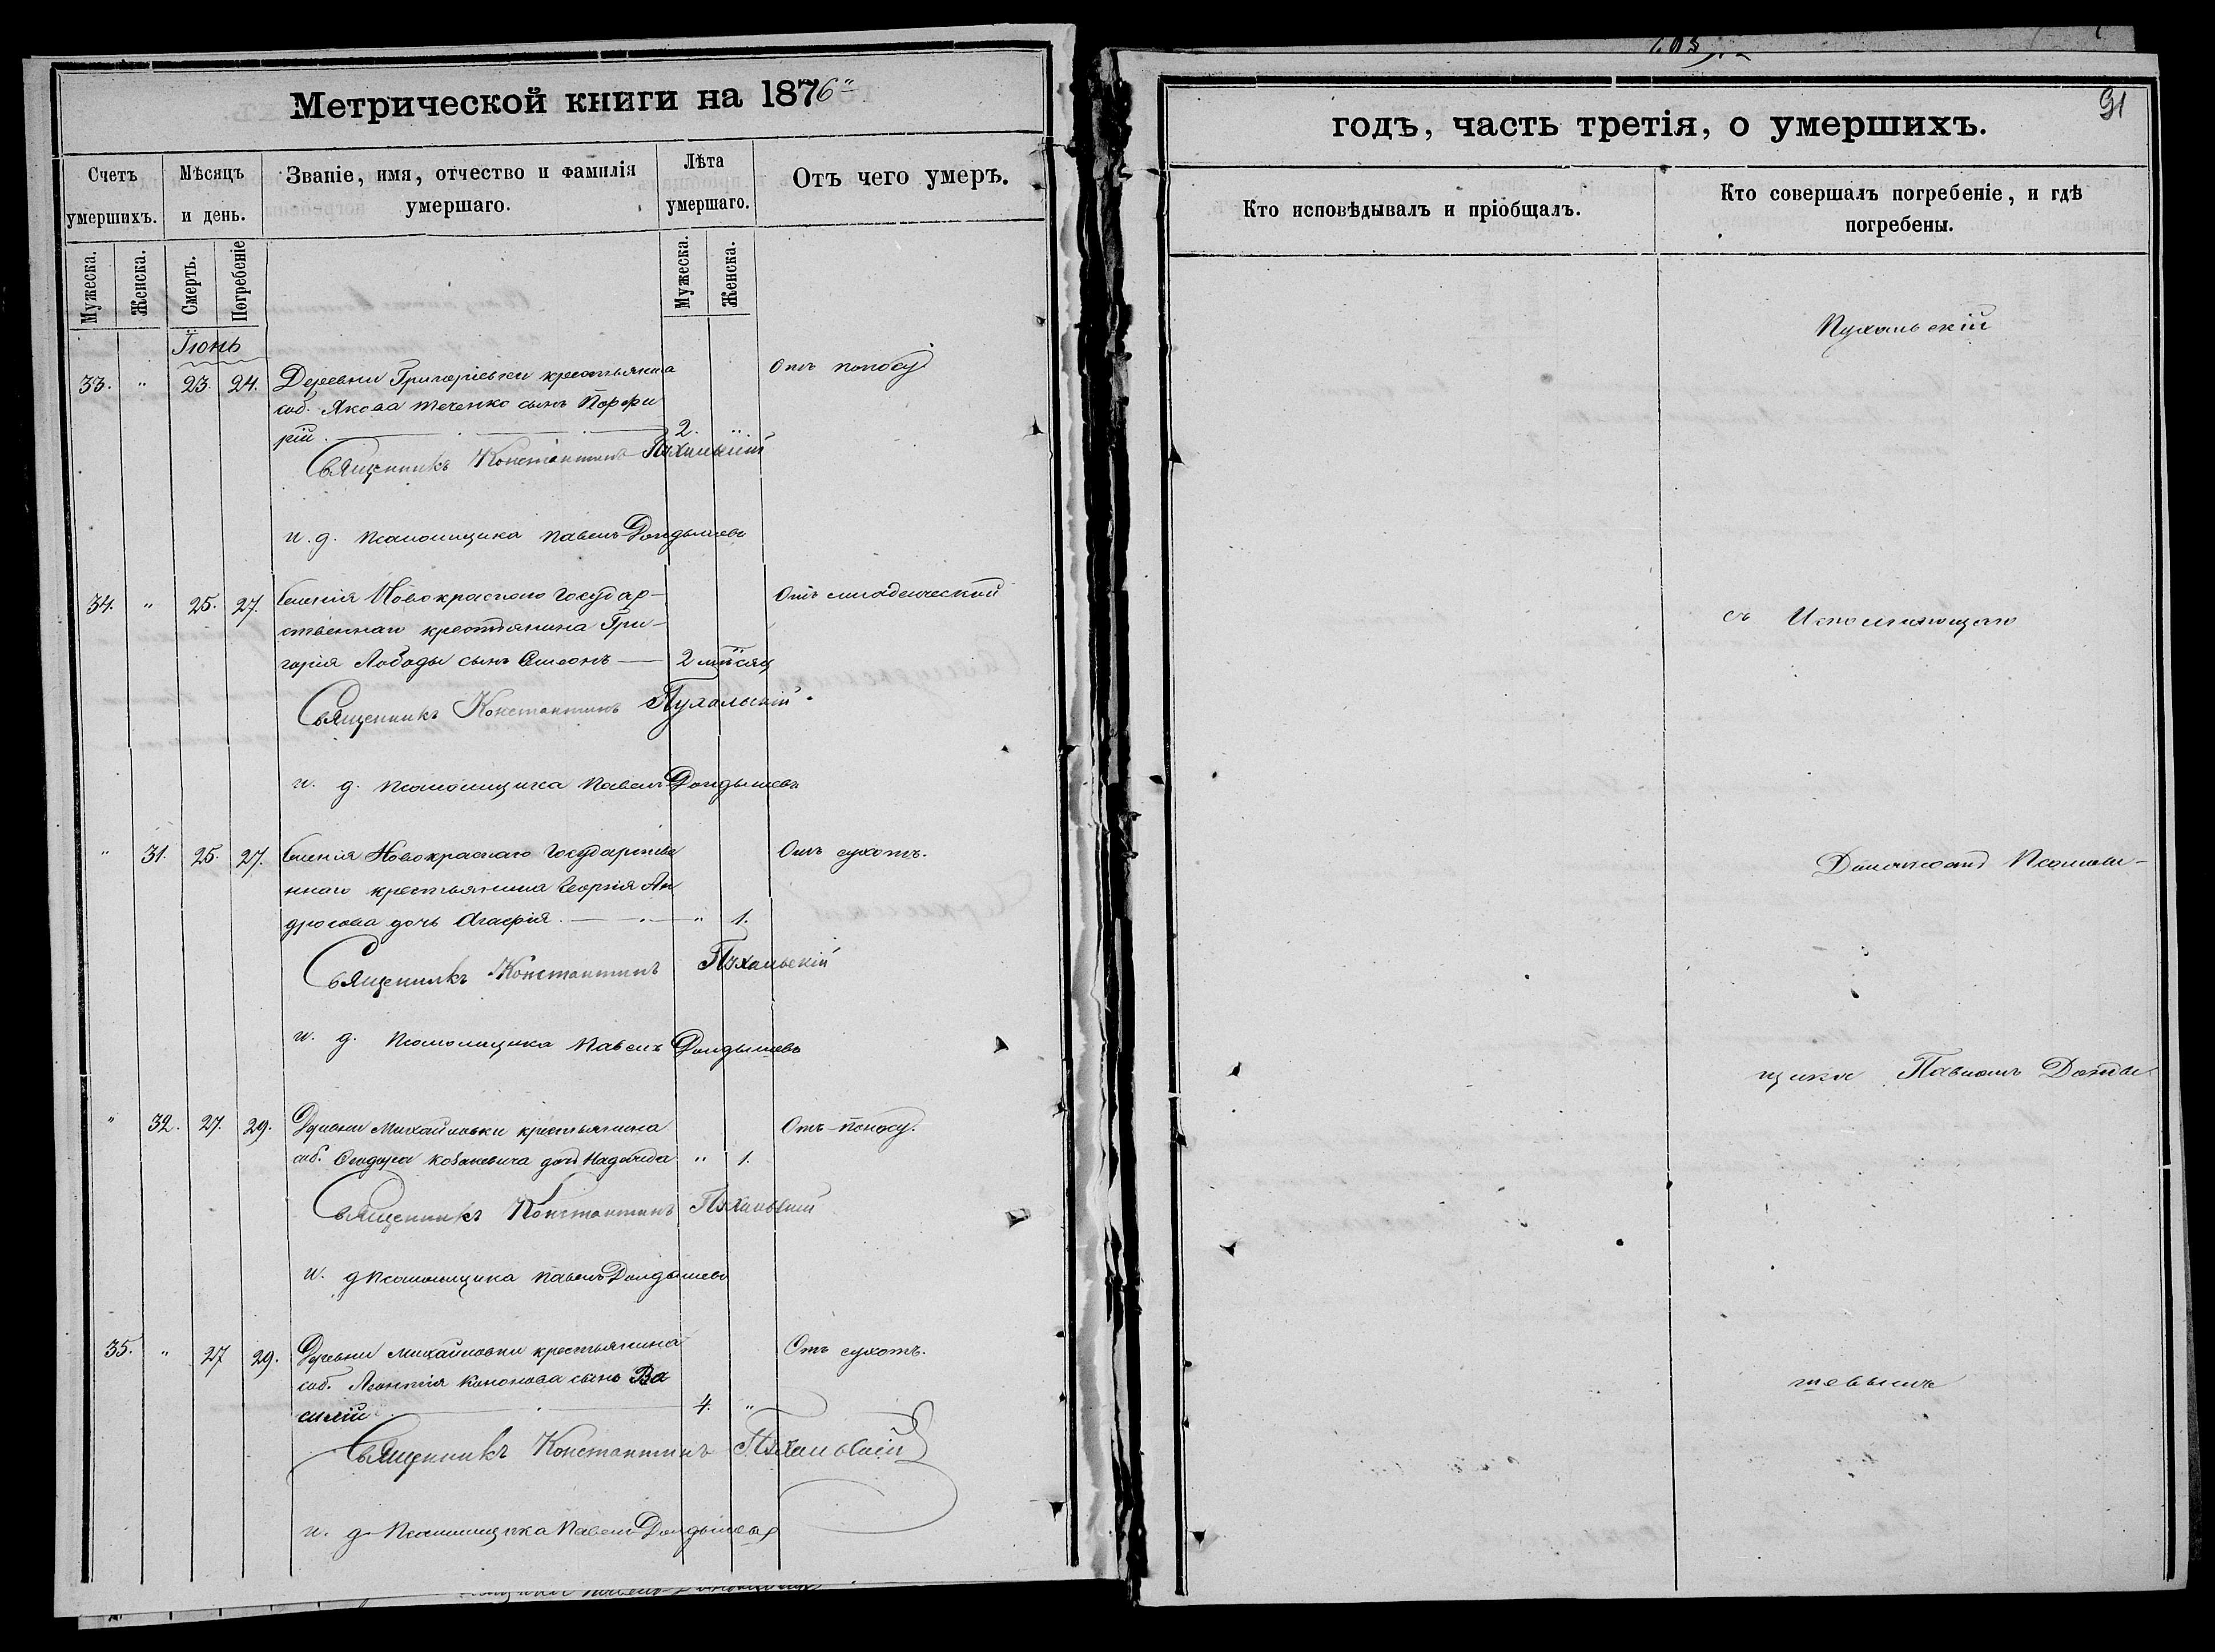 Метрической книги на 1876й
Счетъ умершихъ.
Мѣсяцъ и день.
Званіе, имя, отчество и фамилія умершаго.
Лѣта умершаго.
Отъ чего умеръ.
Мужеска.
Женска.
Смерть.
Погребеніе
Мужеска.
Женска.
Іюнь
33. " 23. 24. Деревни Григоріевки крестьянина Отъ поносу
соб. Якова сынъ Порфи
рій. 2. "
Священникъ Константинъ Пухальскій
и. д. псаломщика Павелъ Долдышевъ
34. " 25. 27. Селенія Новокраснаго Государ- Отъ младенческой
ственнаго крестьянина Гри-
горія Лободы сынъ Симеонъ 2 мѣсяц
Священникъ Константинъ Пухальскій
и. д. псаломщика Павелъ Долдышевъ
" 31. 25. 27. Селенія Новокраснаго Государстве Отъ сухотъ.
ннаго крестьянина Георгія Ан
дросова дочь Агафія. " 1.
Священникъ Константинъ Пухальскій
и. д. псаломщика Павелъ Долдышевъ
" 32. 27. 29. Деревни Михайловки крестьянина Отъ поносу.
соб. Ѳеодора дочь Надежда " 1.
Священникъ Константинъ Пухальскій
и. д псаломщика Павелъ Долдышевъ
35. " 27 29. Деревни Михайловки крестьянина Отъ сухотъ.
соб. Леонтія Кононова сынъ Ва
силій 4. "
Священникъ Константинъ Пухальскій
и. д псаломщика Павелъ Долдышевъ
годъ, часть третія, о умершихъ.
91
Кто исповѣдывалъ и пріобщалъ.
Кто совершалъ погребеніе, и гдѣ погребены.
Пухальскій
съ Исполняющаго
Должность Псалом-
щика Павломъ Долды
шевымъ